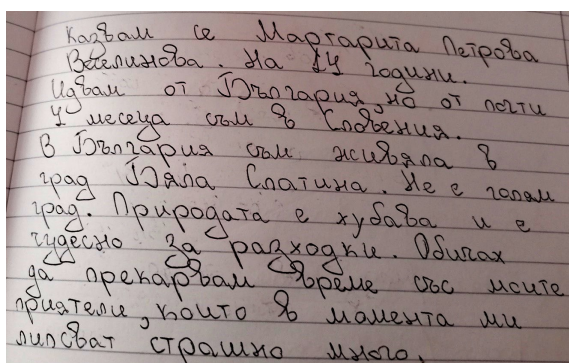 Казвам се Маргарита Петрова
Веселинова. На 14 години.
Идвам от България, но от почти
4 месеца съм в Словения.
В България съм живяла в
град Бяла Слатина. Не е голям
град. Природата е хубава и е
чудесно за разходки. Обичах
да прекарвам време със моите
приятели, които в момента ми
липсват страшно много.